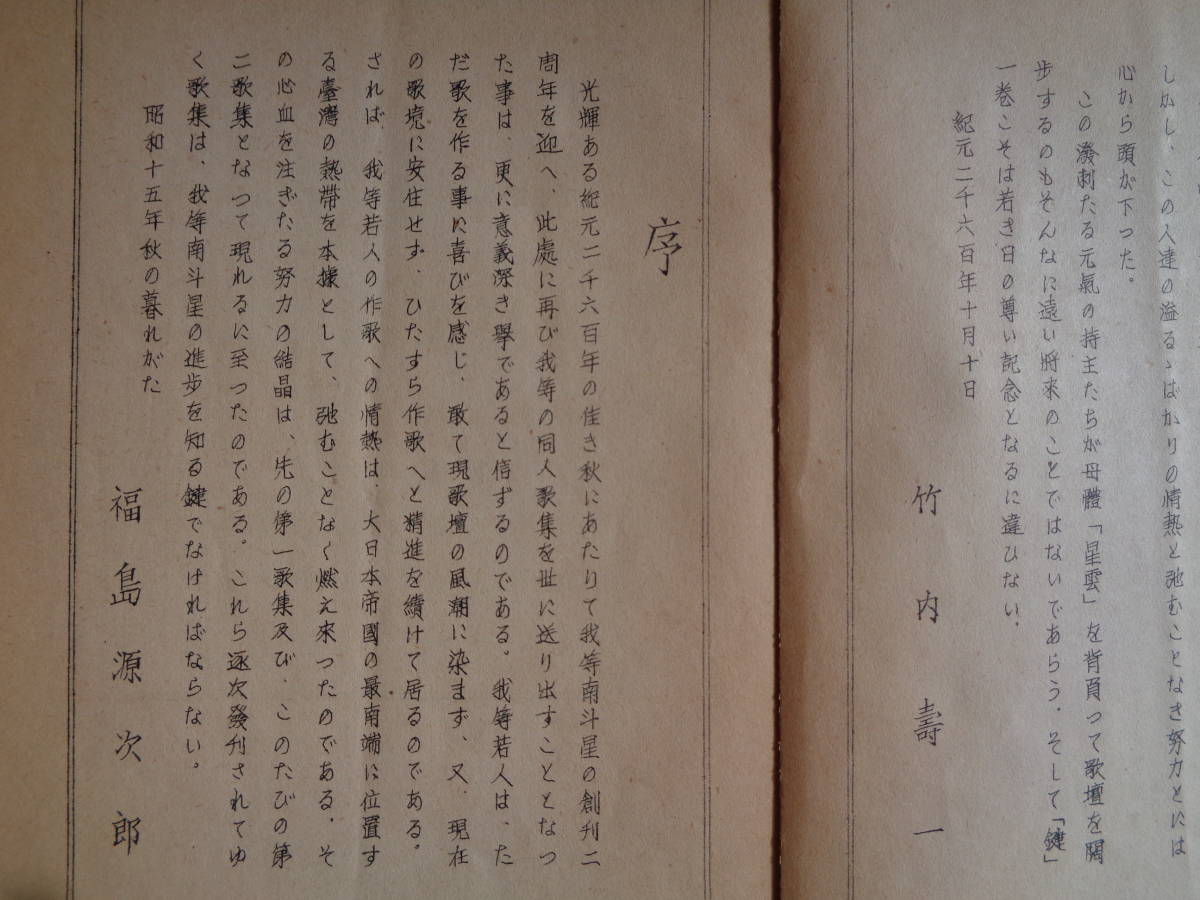 しかし、この人達の溢るゝばかりの情熱と弛むことなき努力とには
心から頭が下つた。
この潑刺たる元氣の持主たちが母體「星雲」を背負つて歌壇を闊
歩するのもそんなに遠い將来のことではないであらう。そして「鍵」
一巻こそは若き日の尊い記念となるに違ひない。
紀元二千六百年十月十日
竹内壽一
序
光輝ある紀元二千六百年の佳き秋にあたりて我等南斗星の創刊二
周年を迎へ、此處に再び我等の同人歌集を世に送り出すこととなつ
た事は、更に意義深き擧であると信ずるのである。我等若人は、た
だ歌を作る事に喜びを感じ、敢て現歌壇の風潮に染まず、又、現在
の歌境に安住せず、ひたすら作歌へと精進を續けて居るのである。
されば、我等若人の作歌への情熱は、大日本帝國の最南端に位置す
る臺灣の熱帯を本據として、弛むことなく燃え來つたのである。そ
の心血を注ぎたる努力の結晶は、先の第一歌集及び、このたびの第
二歌集となつて現れるに至つたのである。これら逐次發刊されてゆ
く歌集は、我等南斗星の進歩を知る鍵でなければならない。
昭和十五年秋の暮れがた
福島源次郎